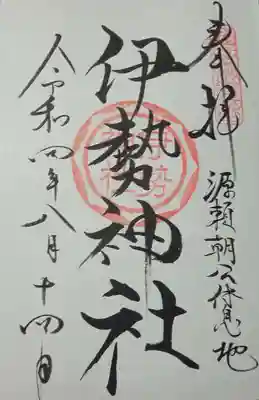 奉拝
源頼朝公休息地
伊勢神社
令和四年八月十四日